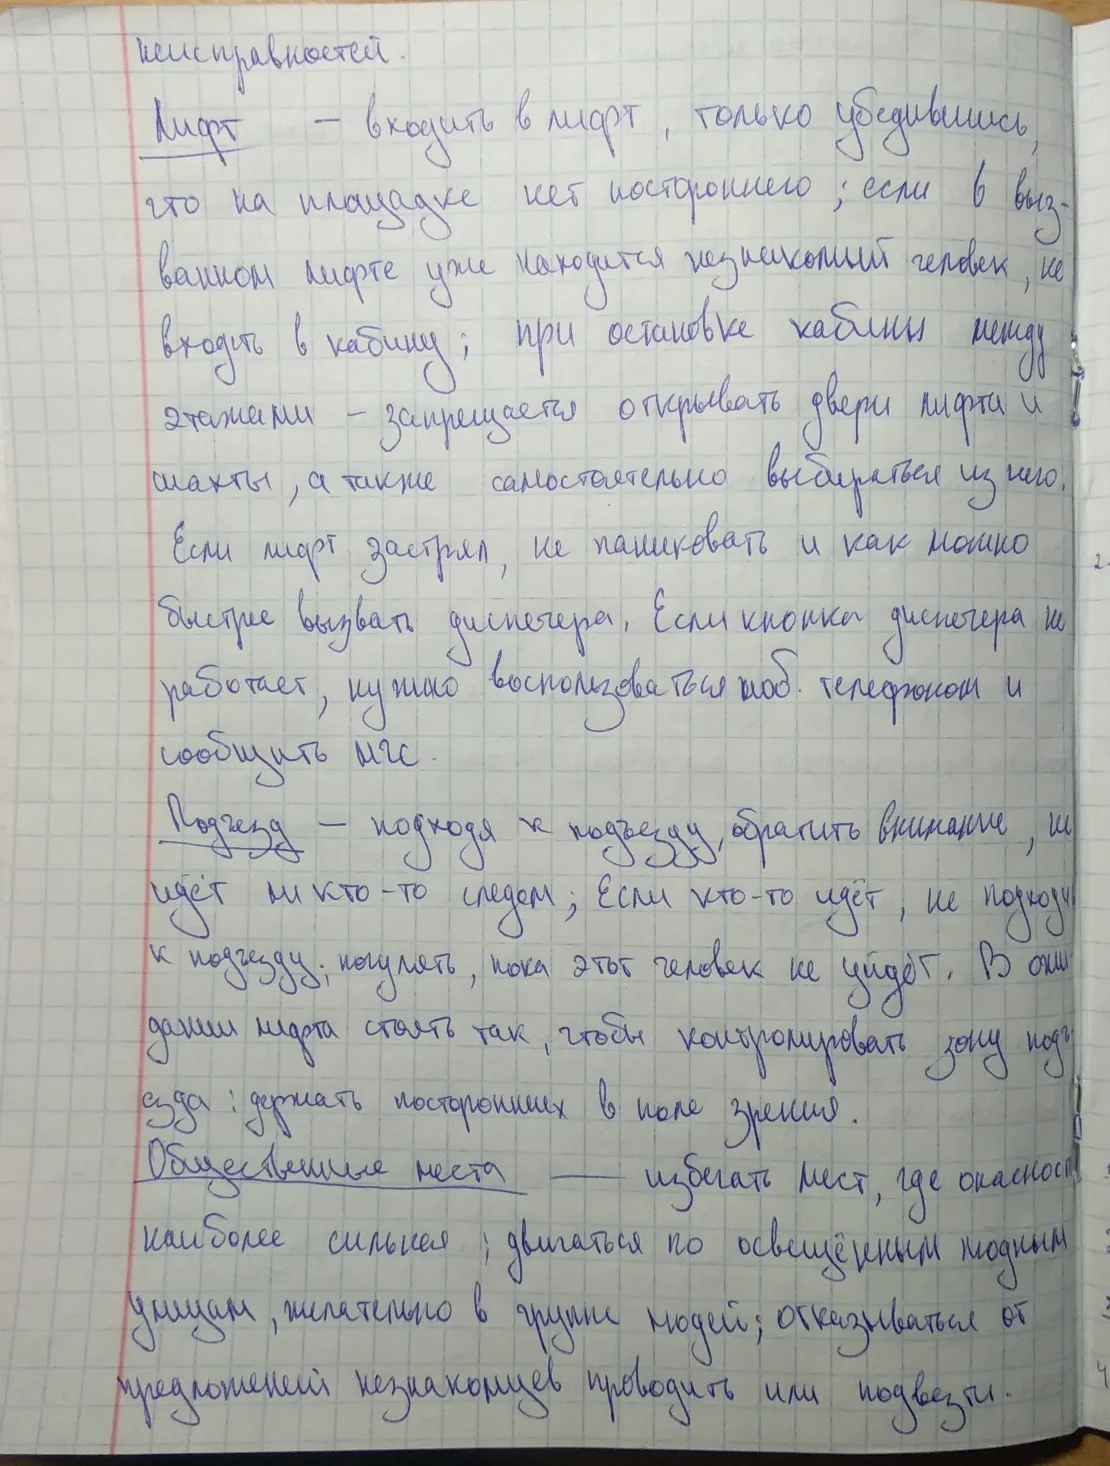 неисправностей.
Лифт — входить в лифт, только убедившись,
что на площадке нет постороннего; если в выз-
ванном лифте уже находится незнакомый человек, не
входить в кабину; при остановке кабины между
этажами – запрещается открывать двери лифта и
шахты, а также самостоятельно выбираться из него.
Если лифт застрял, не паниковать и как можно
быстрее вызвать диспетчера. Если кнопка диспетчера не
работает, нужно воспользоваться моб. телефоном и
сообщить МЧС.
Подъезд — подходя к подъезду, обратить внимание, не
идёт ли кто-то следом; Если кто-то идёт, не подходи
к подъезду; погулять, пока этот человек не уйдёт. В ожи
дании лифта стоять так, чтобы контролировать зону подъ
езда: держать посторонних в поле зрения.
Общественные места — избегать мест, где опасност
наиболее сильная; двигаться по освещённым людным
улицам, желательно в группе людей; отказываться от
предложений незнакомцев проводить или подвезти.